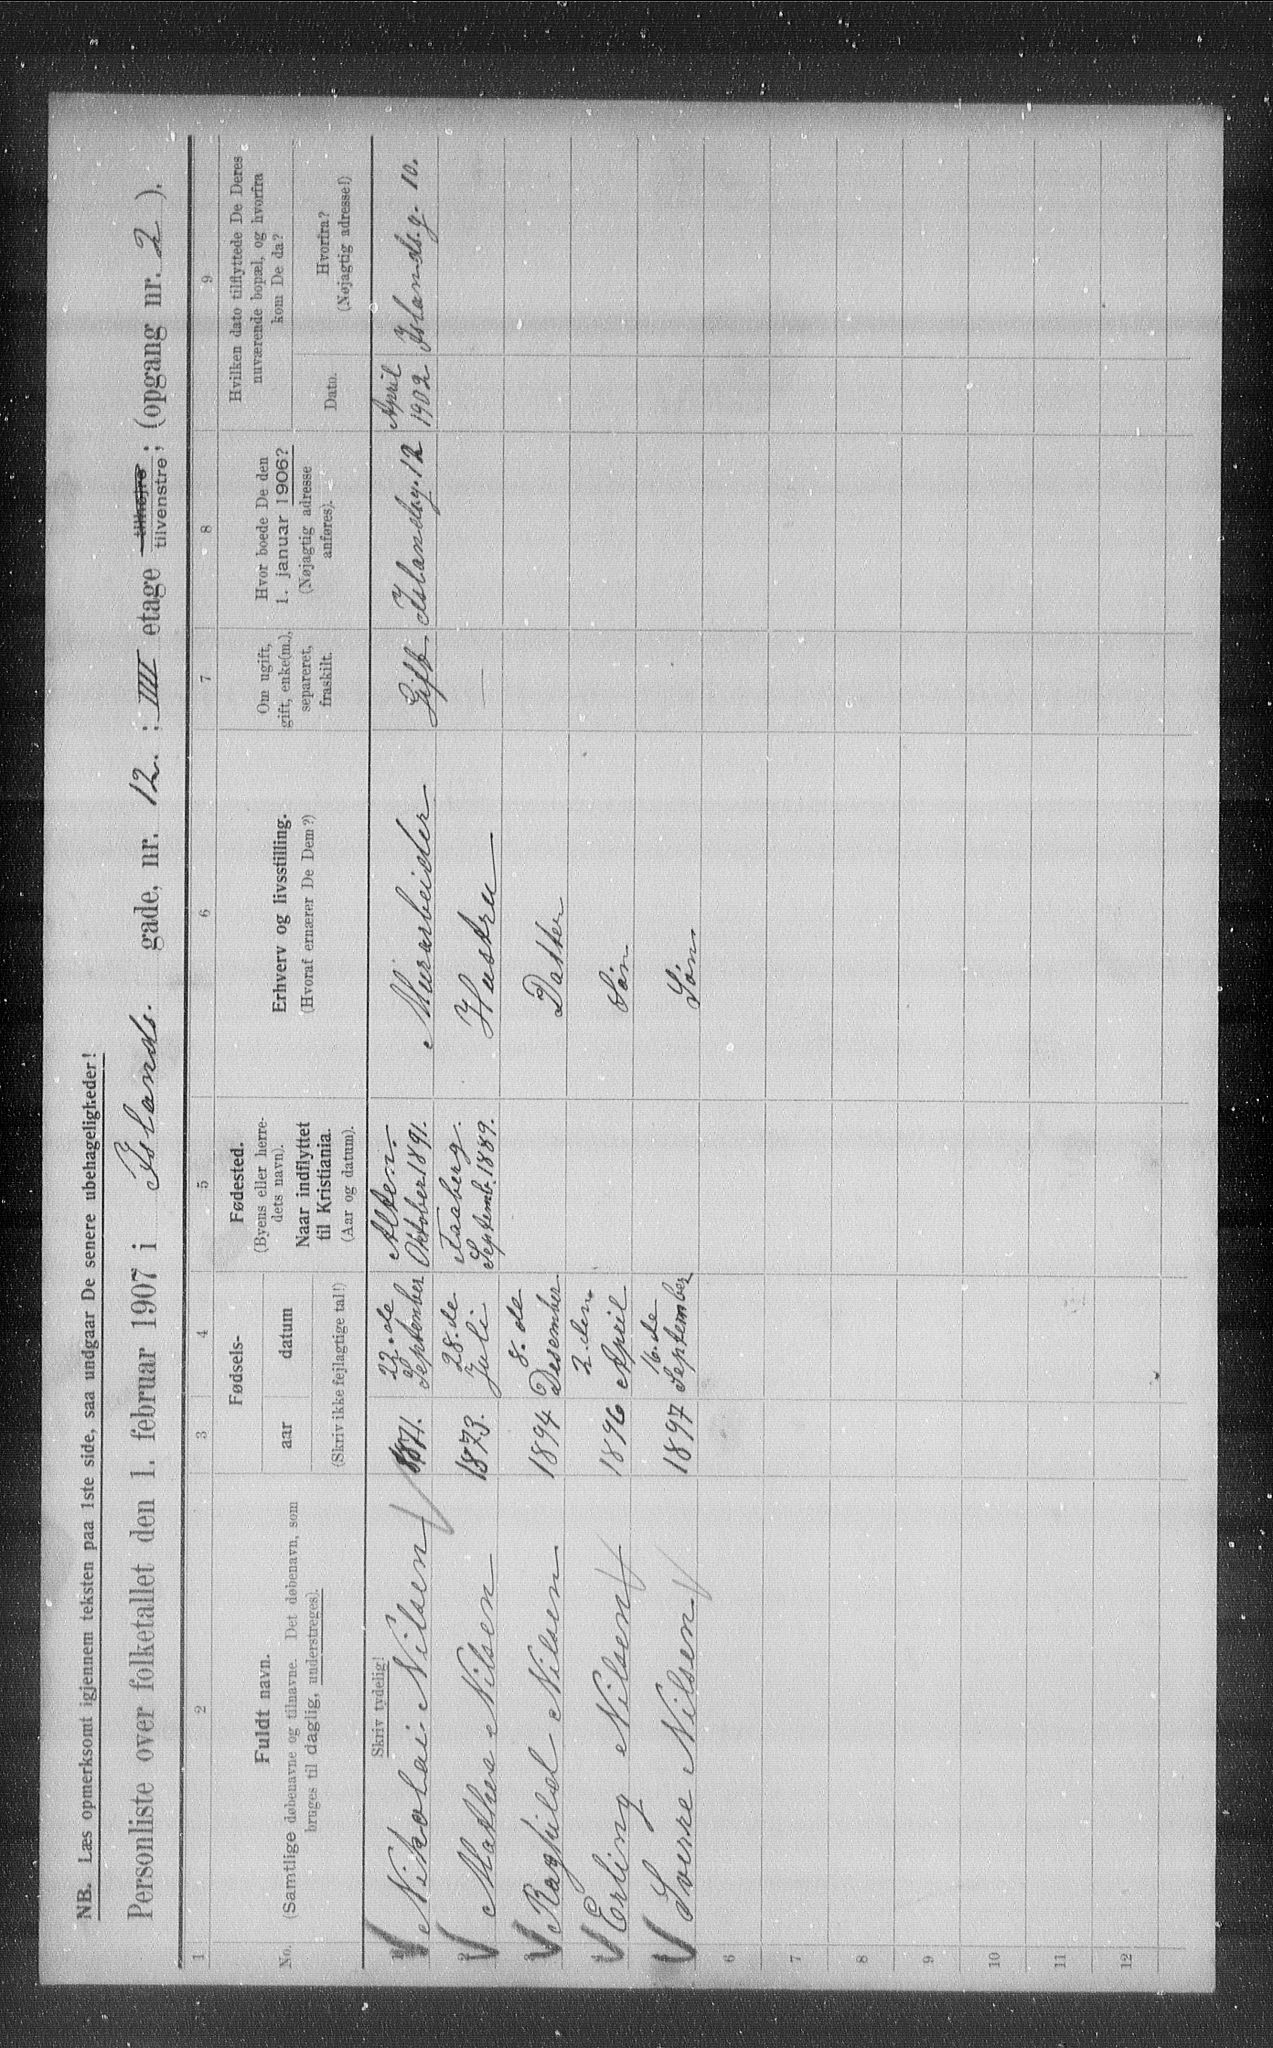 NB. Læs opmerksomt igjennem teksten paa 1ste side, saa undgaar De senere ubehageligheder!
Personliste over folketallet den 1. februar 1907 i Islands. gade, nr. 12. ; IIII etage tilhøjre tilvenstre ; (opgang nr. 2 ).
1 2 3 4 5 6 7 8 9
No.
Fuldt navn.
(Samtlige døbenavne og tilnavne. Det døbenavn, som
bruges til daglig, understreges).
Fødsels-
aar datum
(Skriv ikke fejlagtige tal!)
Fødested.
(Byens eller herre-
dets navn).
Naar indflyttet
til Kristiania.
(Aar og datum).
Erhverv og livsstilling.
(Hvoraf ernærer De Dem?)
Om ugift,
gift, enke(m.),
separeret,
fraskilt.
Hvor boede De den
1. januar 1906?
(Nøjagtig adresse
anføres).
Hvilken dato tilflyttede De Deres
nuværende bopæl, og hvorfra
kom De da?
Dato.
Hvorfra?
(Nøjagtig adresse!)
Skriv tydelig!
1 Nikolai Nilsen 1871. 22.de September Alten. Oktober 1891. Murarbeider Gift Islandsg. 12 April 1902 Islands.g. 10.
2 Mathea Nilsen 1873. 28.de Juli Faaberg. Septemb. 1889. Hustru —
3 Raghild Nilsen 1894 8.de Desember Datter
4 Erling Nilsen 1896 2.den April Søn
5 Sverre Nilsen 1897 16.de September Søn
6
7
8
9
10
11
12